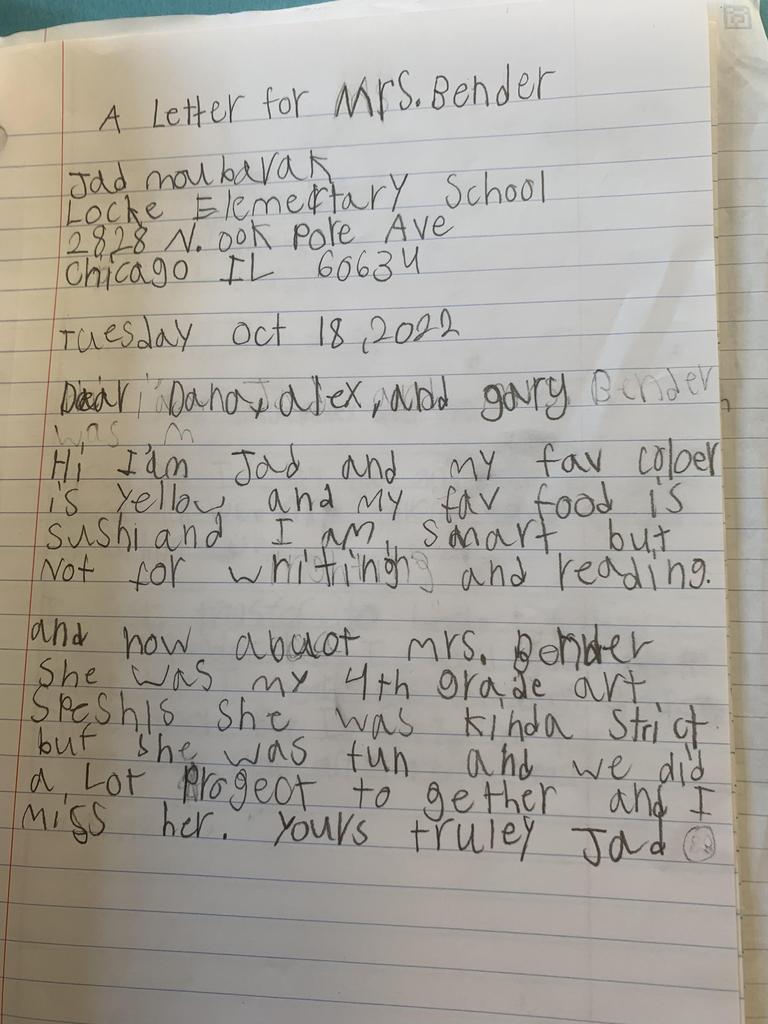 A Letter for Mrs. Bender
Jad moubarak
Locke Elementary School
2828 N. ook Pore Ave
Chicago IL 60634
Tuesday Oct 18, 2022
Dear Dana, alex, and gary Bender,
was m
Hi I'am Jad and my fav coloer
is yellow and my fav food is
sushi and I am smart but
Not for writing and reading.
and now abuot mrs. Bender
She was my 4th grade art
speshls she was kinda strict
but she was fun and we did
a Lot progect to gether and I
miss her. Yours truley Jad